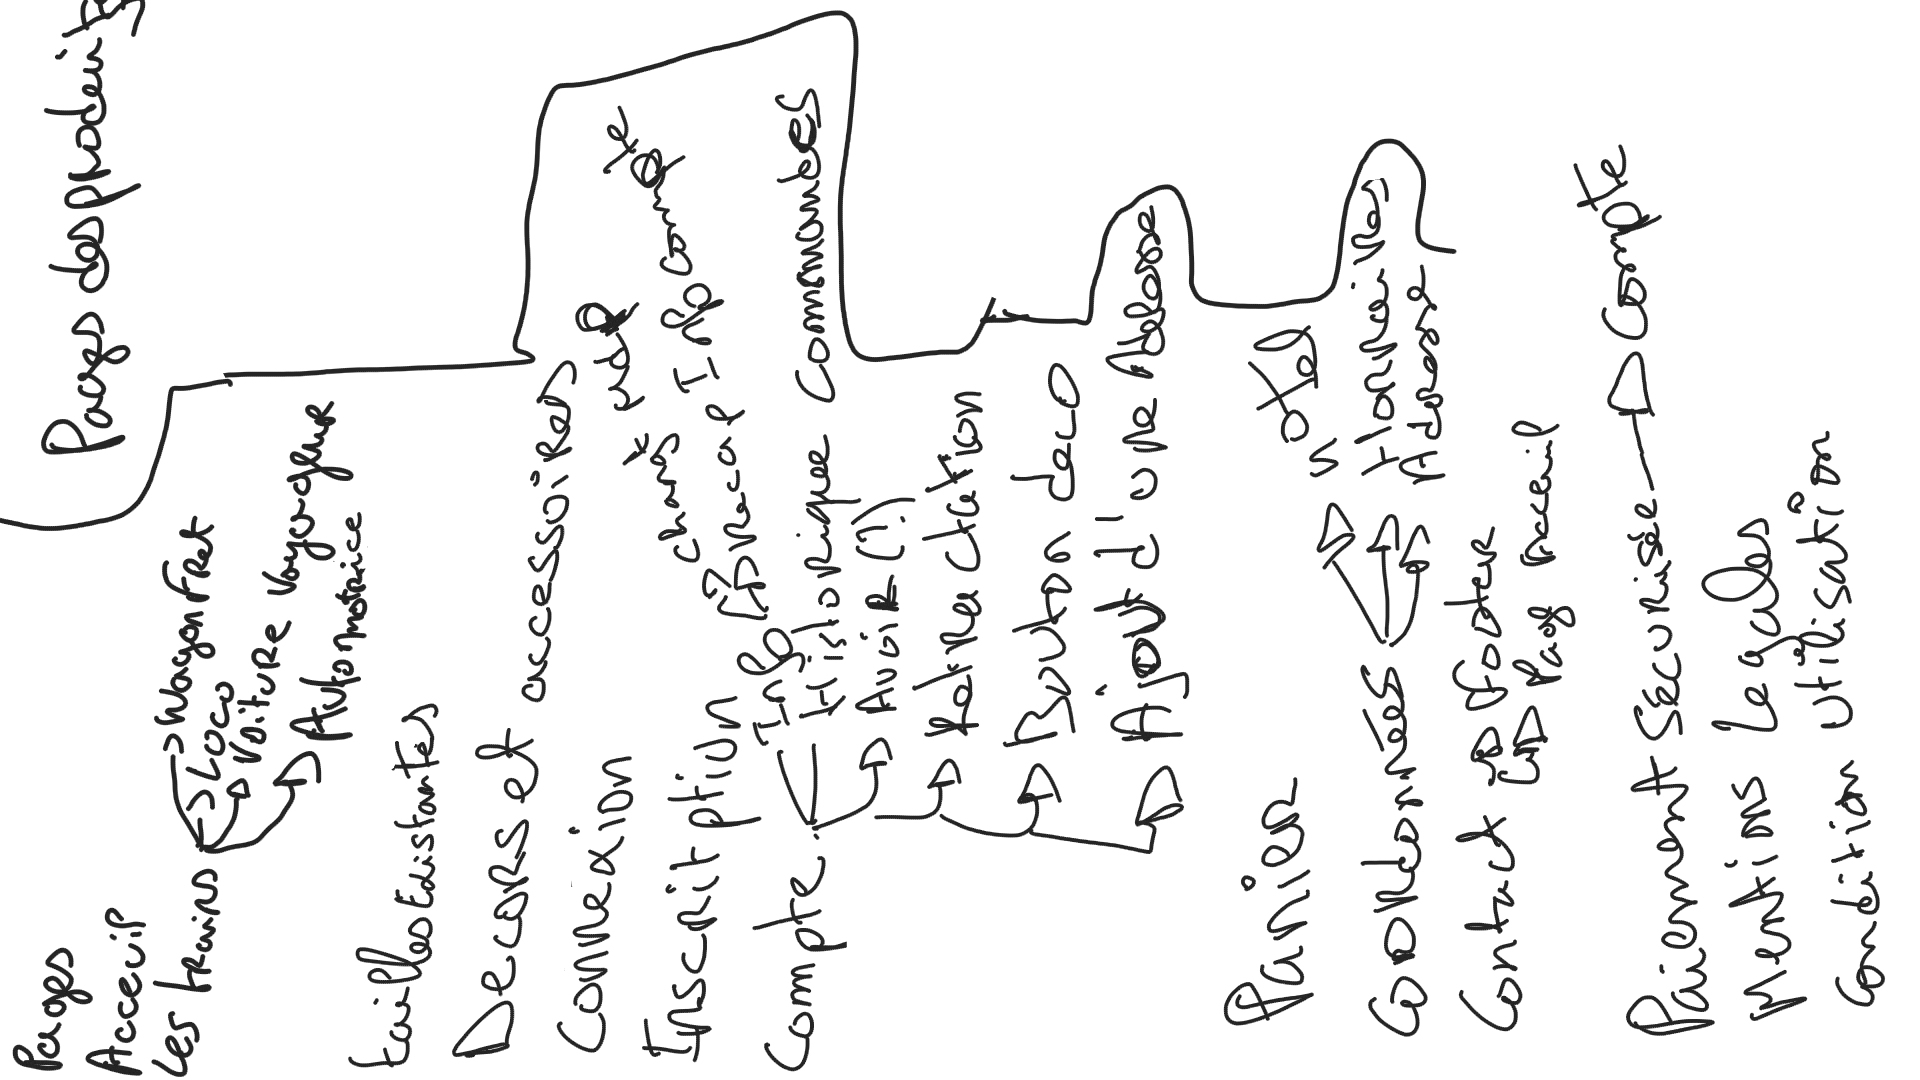 Pages
Acceuil
Les trains
Wagon Fret
Loco
Voiture Voyageur
Automotrice
tailles Existantes
Decors et accessoires
Connexion
Inscritption
Compte
Info
changt MdP
Recap Info compte
Historique Commandes
Avoir (?)
Retractation
Bouton deco
Ajout d'une Adresse
Panier
Coordonnées
n° tel
Horraires
Adresse
Contact
Footer
Page Acceuil
Paiement Sécurisée
Compte
Mentions Legales
Condition utilisation
Pages des produits